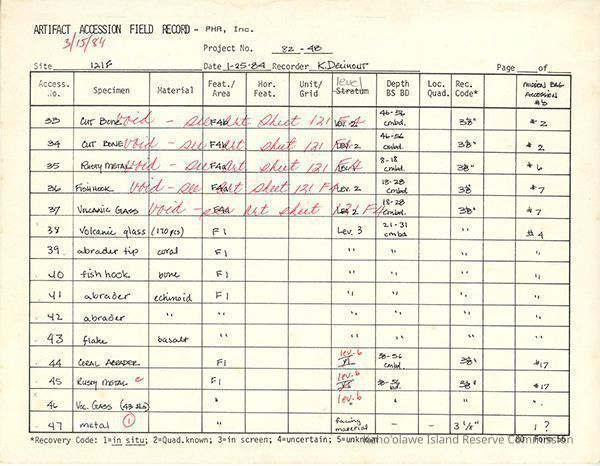 ARTIFACT ACCESSION FIELD RECORD - PHR, Inc.
3/15/84
Project No. 82-48
Site 121F Date 1-25-84 Recorder K. Delimont Page of
Access. No. Specimen Material Feat./ Area Hor. Feat. Unit/ Grid level Stratum Depth BS BD Loc. Quad. Rec. Code* MIDDEN BAG ACCESSION #'s
33 CUT BONE void - see art sheet 121 FA F4A Lev. 2 46-56 cmbd. 3⅛" #2
34 CUT BONE void - see art sheet 121 FA F4A Lev. 2 46-56 cmbd. 3⅛" #2
35 RUSTY METAL void - see art sheet 121 FA F4A Lev. 2 8-18 cmbd. 3⅛" #6
36 FISHHOOK void - see art sheet 121 FA F4A Lev. 2 18-28 cmbd. 3⅛ #7
37 VOLCANIC GLASS Void - see art sheet 121 FA F4A Lev. 2 18-28 cmbd. 3⅛" #7
38 Volcanic glass (170 pcs) F1 Lev. 3 21-31 cmbd " #4
39 abrader tip coral F1 " " " "
40 fishhook bone F1 " " " "
41 abrader echinoid F1 " " " "
42 abrader " " " " " "
43 flake basalt " " " " "
44 CORAL ABRADER F1 lev. 6 VI 38-56 cmbd. 3⅛" #17
45 RUSTY METAL F1 lev. 6 VI 38-56 bd. 3⅛" #17
46 VOL. GLASS " lev. 6 " " "
47 metal 1 " facing material - - 3 ⅛" 1 ?
*Recovery Code: 1=in situ; 2=Quad.known; 3=in screen; 4=uncertain; 5=unknown
80 Form 56
Kaho'olawe Island Reserve Commission